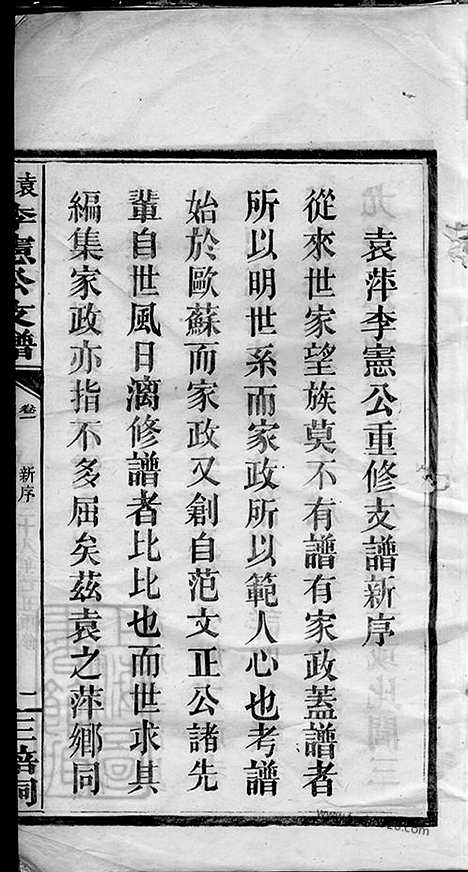 袁萍李憲公重修支譜新序
從來世家望族莫不有譜有家政蓋譜者
所以明世系而家政所以範人心也考譜
始於歐蘇而家政又創自范文正公諸先
輩自世風日漓修譜者比比也而世求其
編集家政亦指不多屈矣茲袁之萍鄉同
袁萍李憲公支譜
卷一
新序
一